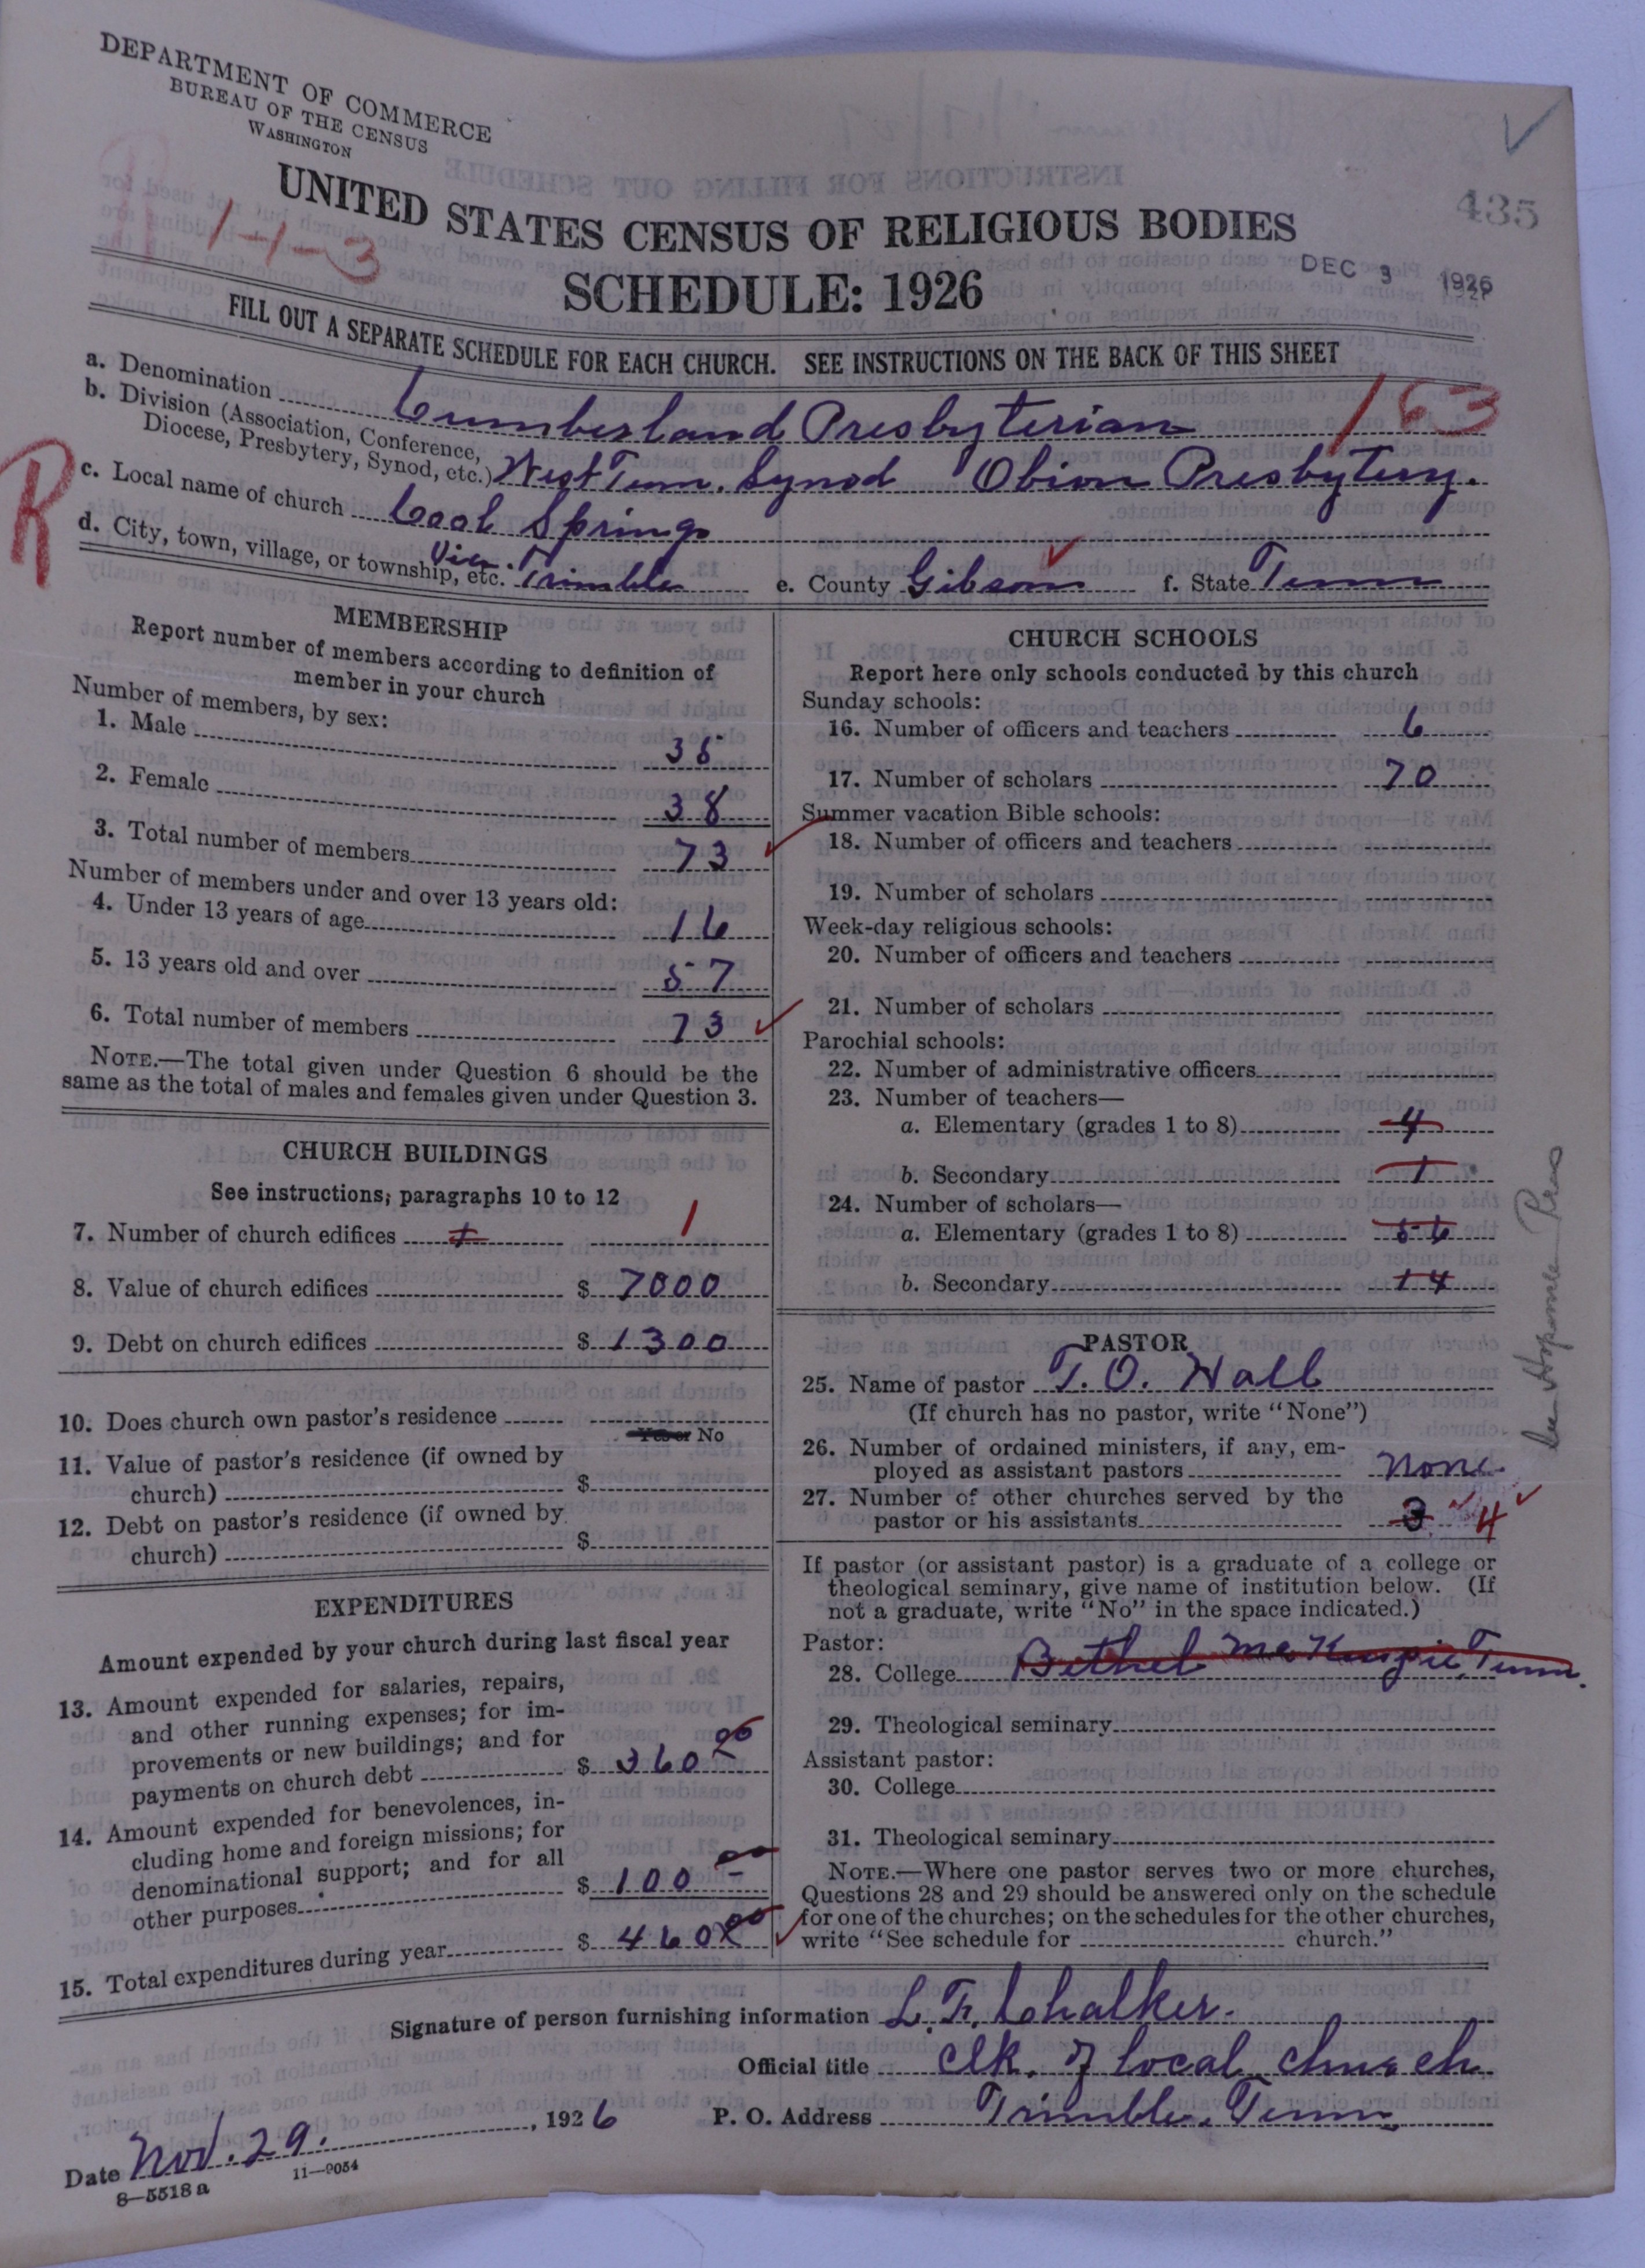 DEPARTMENT OF COMMERCE
BUREAU OF THE CENSUS
WASHINGTON
435
UNITED STATES CENSUS OF RELIGIOUS BODIES
1-1-3
DEC 3 1926
SCHEDULE: 1926
FILL OUT A SEPARATE SCHEDULE FOR EACH CHURCH. SEE INSTRUCTIONS ON THE BACK OF THIS SHEET
a. Denomination Cumberland Presbyterian 163
b. Division (Association, Conference,
Diocese, Presbytery, Synod, etc.) West Tenn. Synod Obion Presbytery.
R
c. Local name of church Cool Springs
d. City, town, village, or township, etc. Trimble e. County Gibson f. State Tenn
MEMBERSHIP
Report number of members according to definition of
member in your church
Number of members, by sex:
1. Male 35
2. Female 38
3. Total number of members 73
Number of members under and over 13 years old:
4. Under 13 years of age 16
5. 13 years old and over 57
6. Total number of members 73
NOTE.—The total given under Question 6 should be the
same as the total of males and females given under Question 3.
CHURCH BUILDINGS
See instructions, paragraphs 10 to 12
7. Number of church edifices 1 1
8. Value of church edifices $ 7000
9. Debt on church edifices $ 1300
10. Does church own pastor's residence
Yes or No
11. Value of pastor's residence (if owned by
church) $
12. Debt on pastor's residence (if owned by
church) $
EXPENDITURES
Amount expended by your church during last fiscal year
13. Amount expended for salaries, repairs,
and other running expenses; for im-
provements or new buildings; and for
payments on church debt $ 360 00
14. Amount expended for benevolences, in-
cluding home and foreign missions; for
denominational support; and for all
other purposes $ 100 00
15. Total expenditures during year $ 460 00
CHURCH SCHOOLS
Report here only schools conducted by this church
Sunday schools:
16. Number of officers and teachers 6
17. Number of scholars 70
Summer vacation Bible schools:
18. Number of officers and teachers
19. Number of scholars
Week-day religious schools:
20. Number of officers and teachers
21. Number of scholars
Parochial schools:
22. Number of administrative officers
23. Number of teachers—
a. Elementary (grades 1 to 8) 4
b. Secondary 1
24. Number of scholars—
a. Elementary (grades 1 to 8) 56
b. Secondary 14
PASTOR
25. Name of pastor T. O. Hall
(If church has no pastor, write "None")
26. Number of ordained ministers, if any, em-
ployed as assistant pastors None
27. Number of other churches served by the
pastor or his assistants 3 4
If pastor (or assistant pastor) is a graduate of a college or
theological seminary, give name of institution below. (If
not a graduate, write "No" in the space indicated.)
Pastor:
28. College Bethel McKenzie, Tenn.
29. Theological seminary
Assistant pastor:
30. College
31. Theological seminary
NOTE.—Where one pastor serves two or more churches,
Questions 28 and 29 should be answered only on the schedule
for one of the churches; on the schedules for the other churches,
write "See schedule for church."
Signature of person furnishing information L. F. Chalker.
Official title Clk. of local church
Date Nov. 29. , 1926 P. O. Address Trimble, Tenn
8—5518 a 11—9054